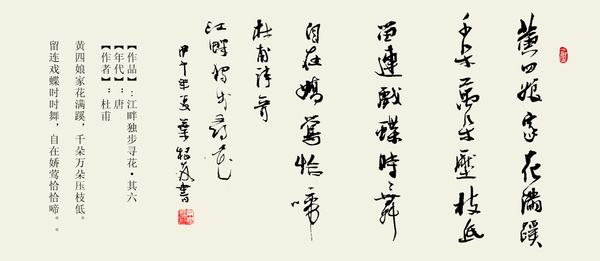 黃四娘家花滿蹊
千朵萬朵壓枝低
留連戲蝶時〻舞
自在嬌鶯恰〻啼
杜甫詩
江畔獨步尋花
甲午年夏 書
【作品】：江畔独步寻花·其六
【年代】：唐
【作者】：杜甫
黄四娘家花满蹊，千朵万朵压枝低。
留连戏蝶时时舞，自在娇莺恰恰啼。。